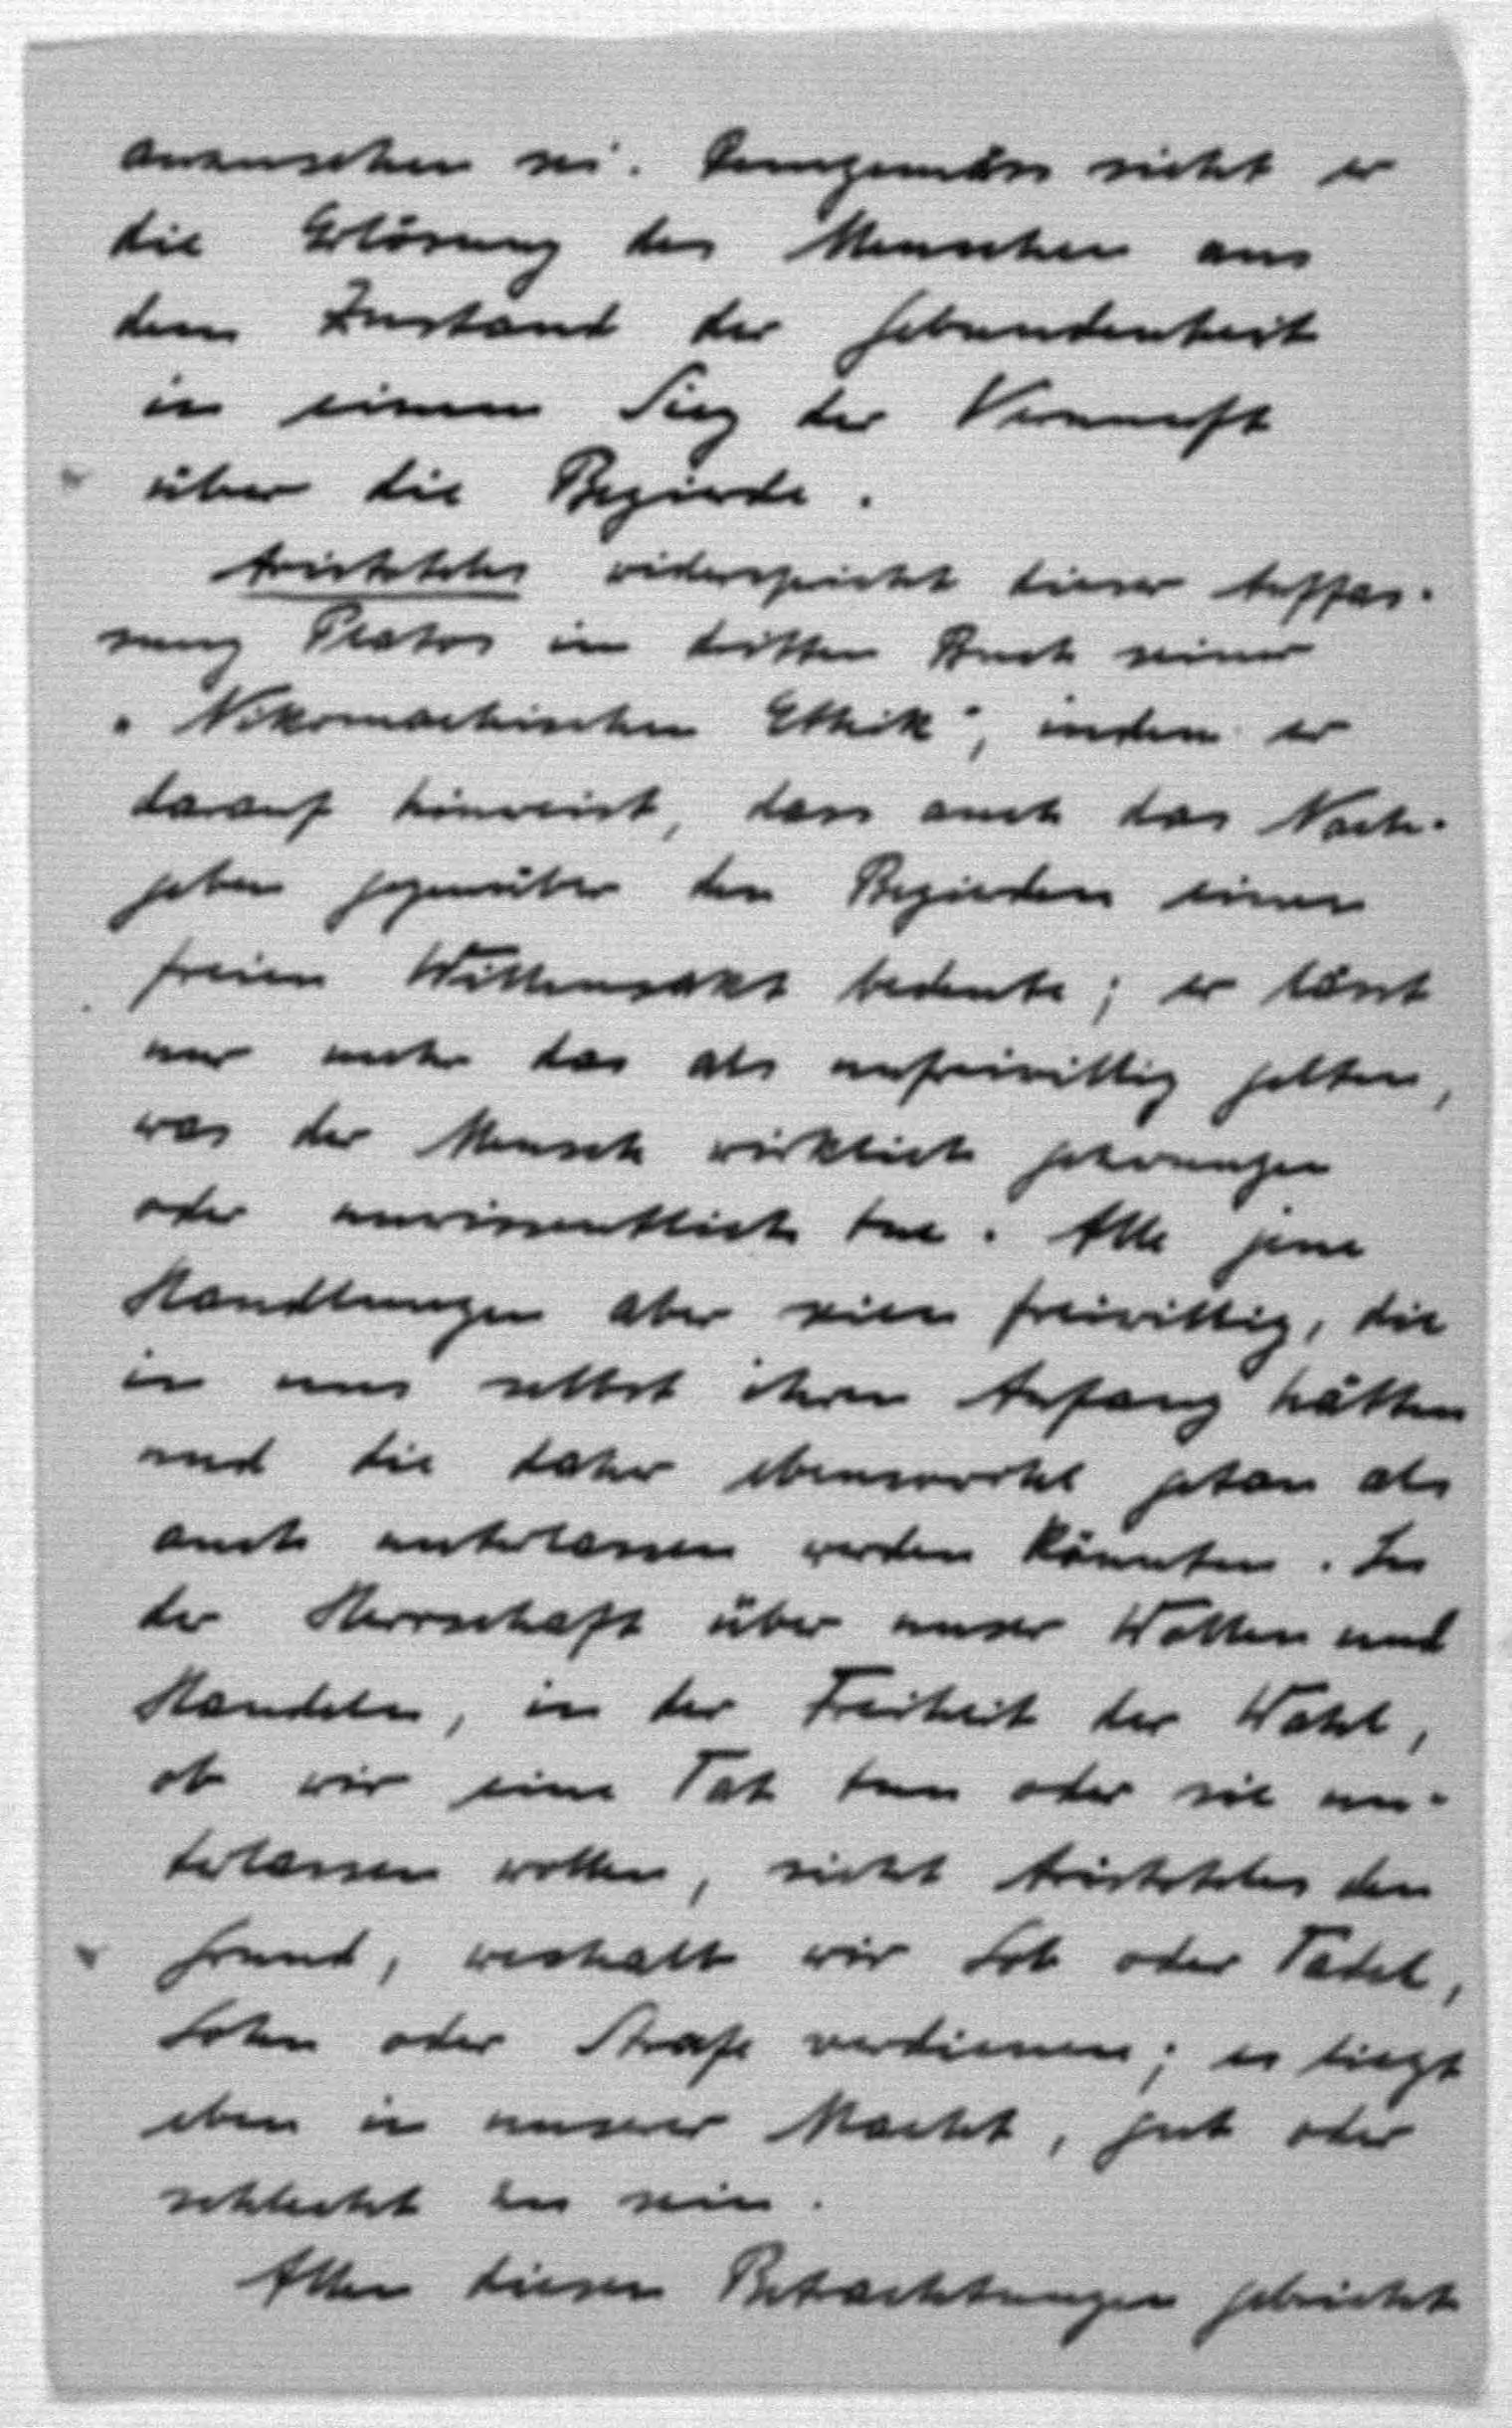 anzusehen sei. Demgemäss sieht er
die Erlösung des Menschen aus
dem Zustand der Gebundenheit
in einem Sieg der Vernunft
über die Begierde.
Aristoteles widerspricht dieser Auffas-
sung Platos im dritten Buch seiner
„Nikomachischen Ethik", indem er
darauf hinweist, dass auch das Nach-
geben gegenüber den Begierden einen
freien Willensakt bedeute; er lässt
nur mehr das als unfreiwillig gelten,
was der Mensch wirklich gezwungen
oder unwissentlich tue. Alle jene
Handlungen aber seien freiwillig, die
in uns selbst ihren Anfang hätten
und die daher ebensowohl getan als
auch unterlassen werden könnten. In
der Herrschaft über unser Wollen und
Handeln, in der Freiheit der Wahl,
ob wir eine Tat tun oder sie un-
terlassen wollen, sieht Aristoteles den
Grund, weshalb wir Lob oder Tadel,
Lohn oder Strafe verdienen; es liegt
eben in unserer Macht, gut oder
schlecht zu sein.
Allen diesen Betrachtungen gebricht